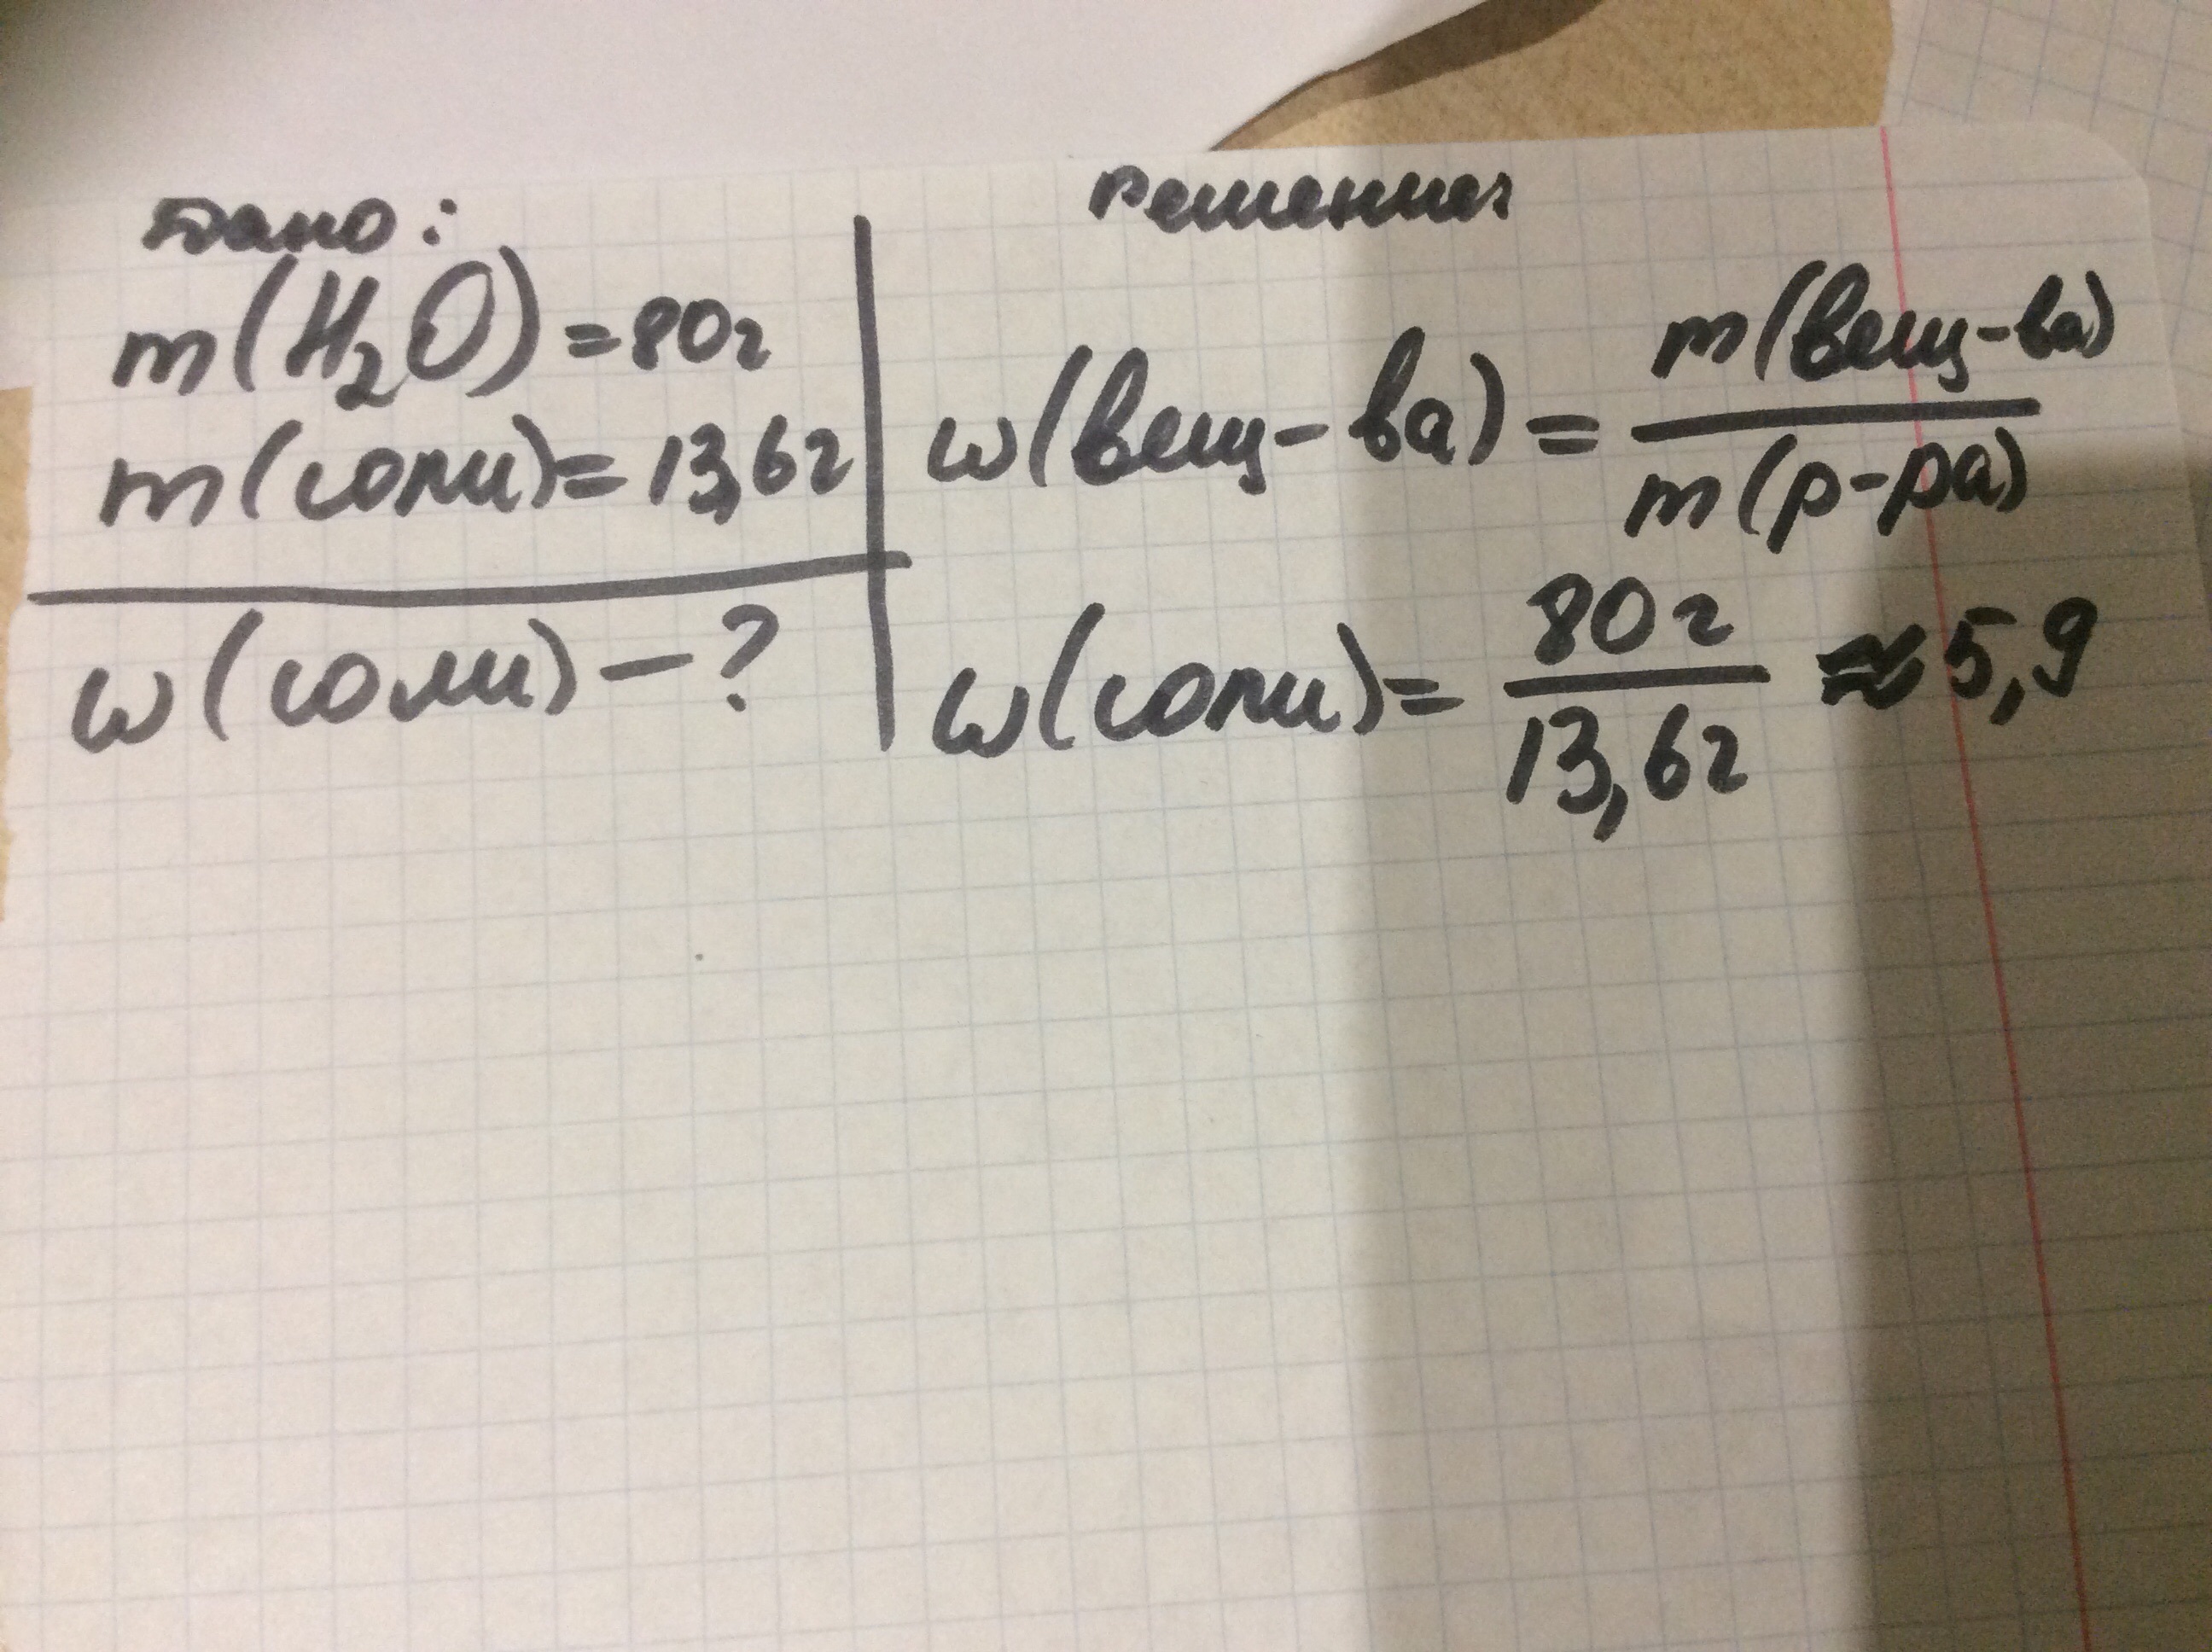 Дано:
m(H₂O)=80г
m(соли)=13,6г
w(соли)-?
Решения
w(вещ-ва) = m(вещ-ва)
m(р-ра)
w(соли)= 80г
13,6г
≈5,9